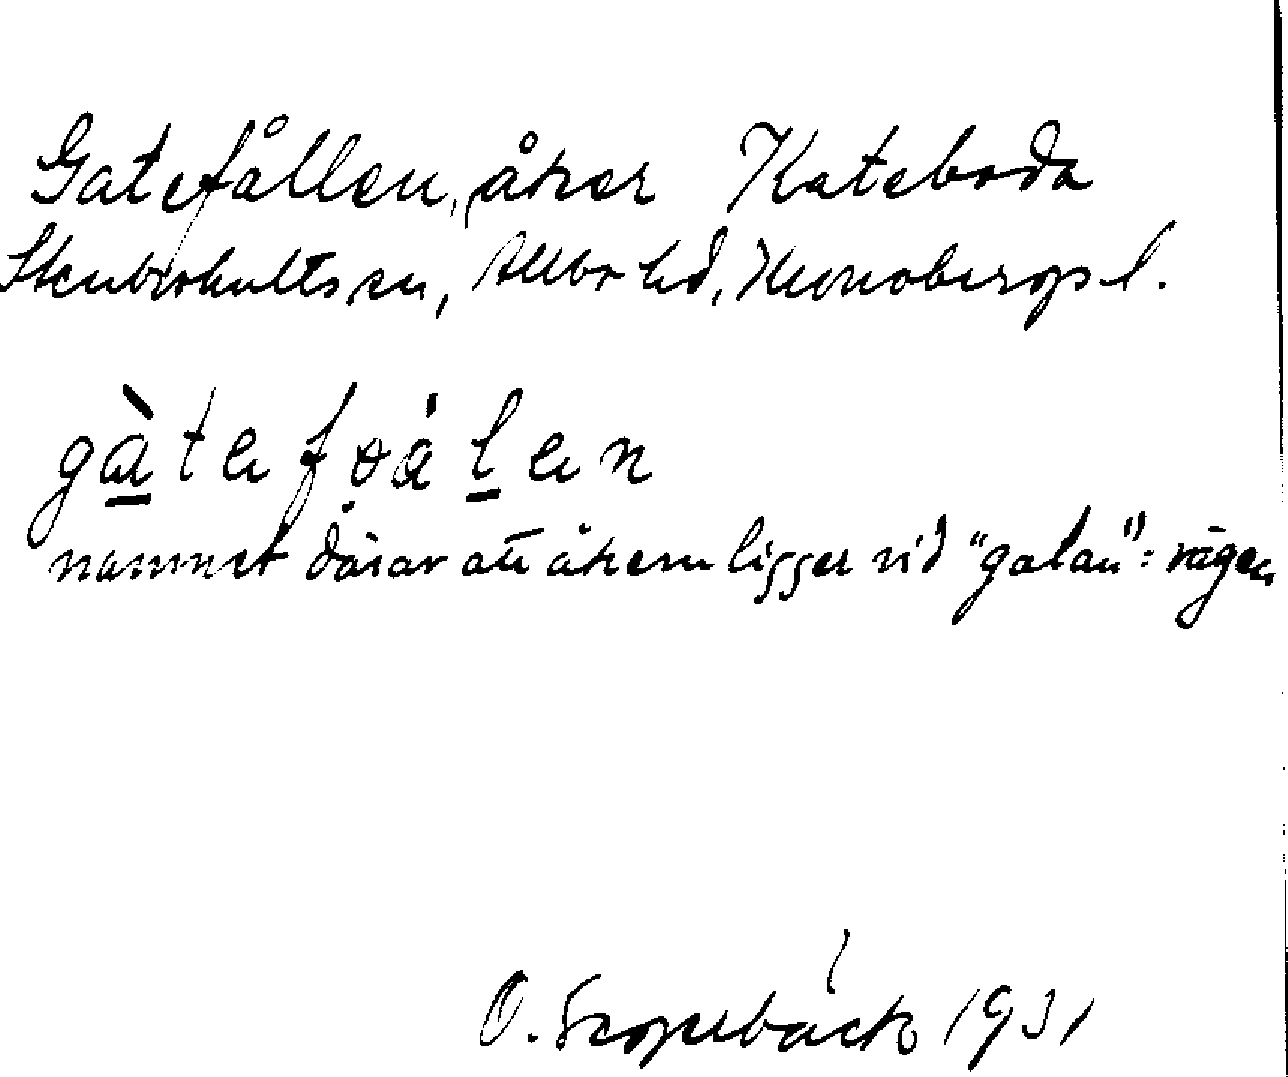 Gatefållen, åker Kateboda
Skatelövs sn, Allbo hd, Kronobergs l.
gàtefoálen
namnet därav att åkern ligger vid "gatan": vägen
O. 1931